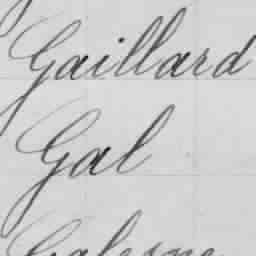 Gaillard
Gal